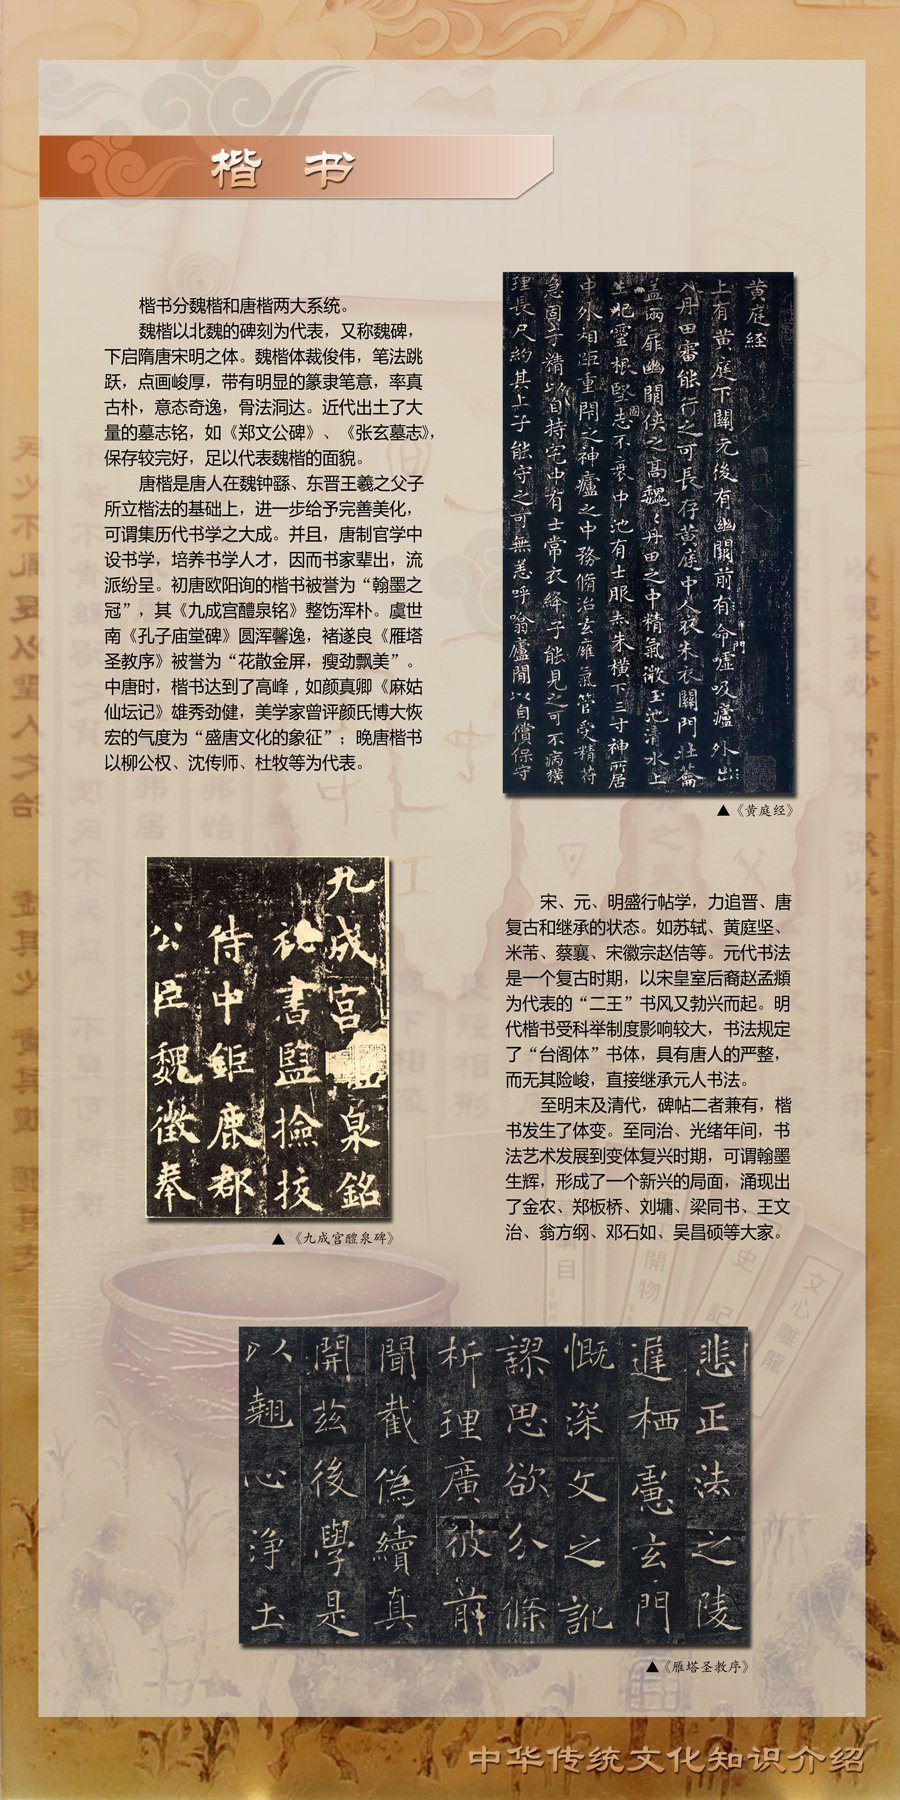 楷 书
楷书分魏楷和唐楷两大系统。
魏楷以北魏的碑刻为代表，又称魏碑，
下启隋唐宋明之体。魏楷体裁俊伟，笔法跳
跃，点画峻厚，带有明显的篆隶笔意，率真
古朴，意态奇逸，骨法洞达。近代出土了大
量的墓志铭，如《郑文公碑》、《张玄墓志》，
保存较完好，足以代表魏楷的面貌。
唐楷是唐人在魏钟繇、东晋王羲之父子
所立楷法的基础上，进一步给予完善美化，
可谓集历代书学之大成。并且，唐制官学中
设书学，培养书学人才，因而书家辈出，流
派纷呈。初唐欧阳询的楷书被誉为“翰墨之
冠”，其《九成宫醴泉铭》整饬浑朴。虞世
南《孔子庙堂碑》圆浑馨逸，褚遂良《雁塔
圣教序》被誉为“花散金屏，瘦劲飘美”。
中唐时，楷书达到了高峰，如颜真卿《麻姑
仙坛记》雄秀劲健，美学家曾评颜氏博大恢
宏的气度为“盛唐文化的象征”；晚唐楷书
以柳公权、沈传师、杜牧等为代表。
黄庭经
上有黄庭下關元後有幽關前有命門噓吸廬外出
入丹田審能行之可長存黄庭中人衣朱衣關門壯蘥
蓋兩扉幽關侠之高魏魏丹田之中精氣微玉池清水上
生肥靈根堅志不衰中池有士服赤朱横下三寸神所居
中外相距重閇之神廬之中務脩治玄廱氣管受精符
急固子精以自持宅中有士常衣絳子能見之可不病横
理長尺約其上子能守之可無恙呼噏廬間以自償保守
▲《黄庭经》
九成宫
泉銘
秘書監撿挍
侍中鉅鹿郡
公臣魏徵奉
▲《九成宫醴泉碑》
宋、元、明盛行帖学，力追晋、唐
复古和继承的状态。如苏轼、黄庭坚、
米芾、蔡襄、宋徽宗赵佶等。元代书法
是一个复古时期，以宋皇室后裔赵孟頫
为代表的“二王”书风又勃兴而起。明
代楷书受科举制度影响较大，书法规定
了“台阁体”书体，具有唐人的严整，
而无其险峻，直接继承元人书法。
至明末及清代，碑帖二者兼有，楷
书发生了体变。至同治、光绪年间，书
法艺术发展到变体复兴时期，可谓翰墨
生辉，形成了一个新兴的局面，涌现出
了金农、郑板桥、刘墉、梁同书、王文
治、翁方纲、邓石如、吴昌硕等大家。
悲正法之陵
遲栖慮玄門
慨深文之訛
謬思欲分條
析理廣彼前
聞截偽續真
開兹後學是
以翹心淨土
▲《雁塔圣教序》
開物
史記
文心雕龍
中华传统文化知识介绍